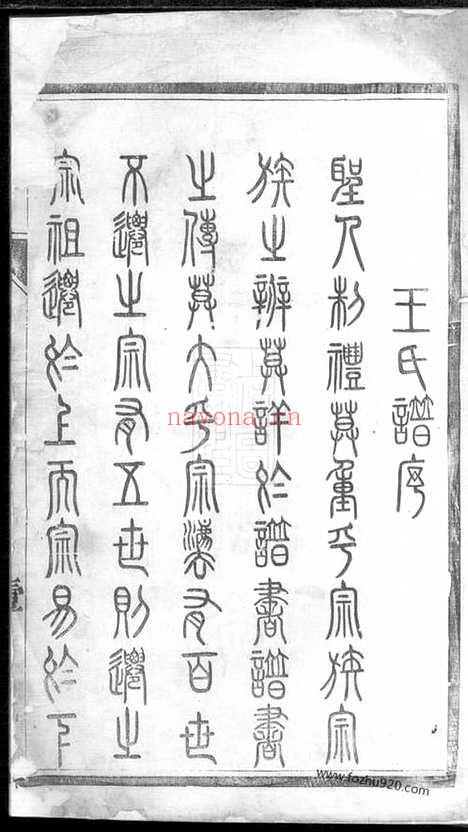 王氏譜序
聖人制禮莫重乎宗族宗
族之辨莫詳於譜書譜書
之傳莫大乎宗灋有百世
不遷之宗有五世則遷之
宗祖遷於上而宗易於下
nayona.cn
www.fozhu920.com